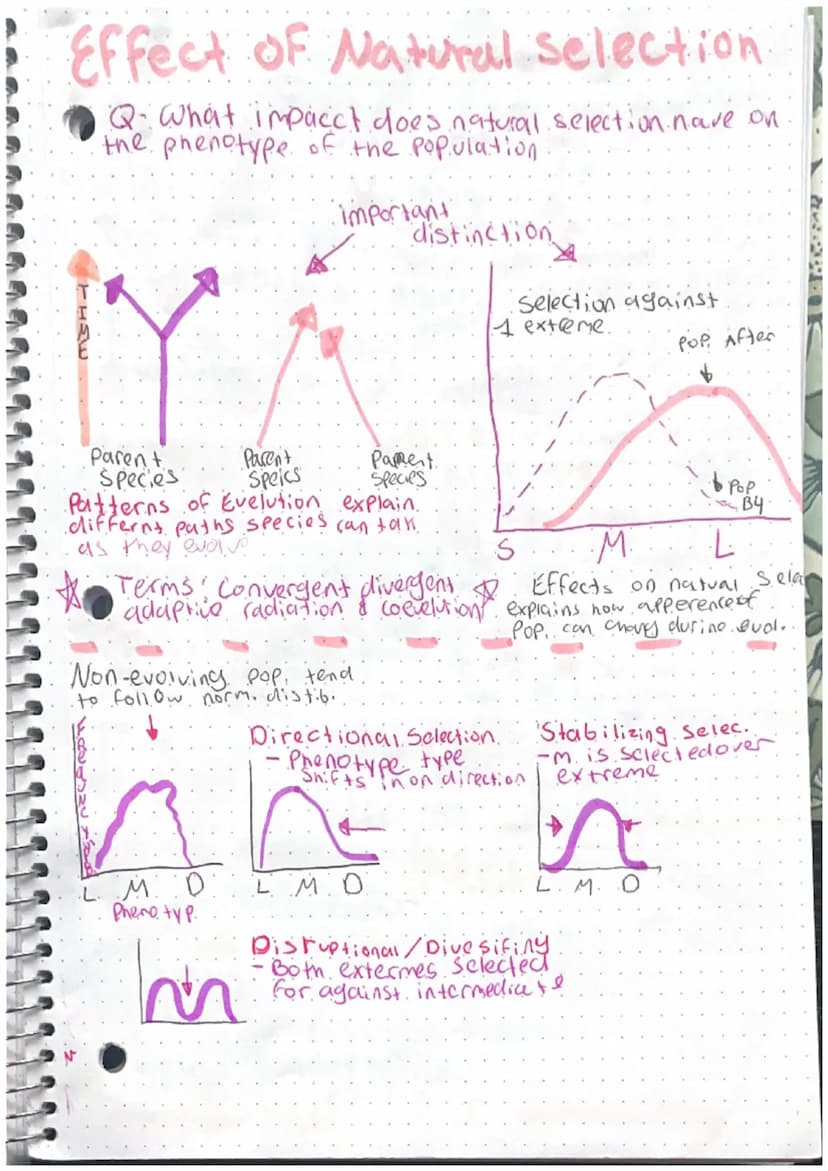 Effect of Natural Selection
Q. What impacct does natural selection have on
the phenotype of the population
important
distinction
TIME
Selection against
1 extreme
POP. After
Parent
Species
Parent
Speics
Parent
Species
Pop
B4
S M L
Patterns of Evelution explain
differnt paths species can tak
as they evolv
Terms: Convergent divergent
adaptive radiation & coevelution
Effects on natural Selec
explains how apperence of
Pop. can chang during eval.
Non-evolving pop. tend
to follow norm. distib.
Directional Selection
- Phenotype type
shifts in on direction
Stabilizing Selec.
- m is selected over
extreme
L M D
Phenotyp.
L M D
L M D
Disruptional / Divesifiny
- Both extermes selected
for against intermediate